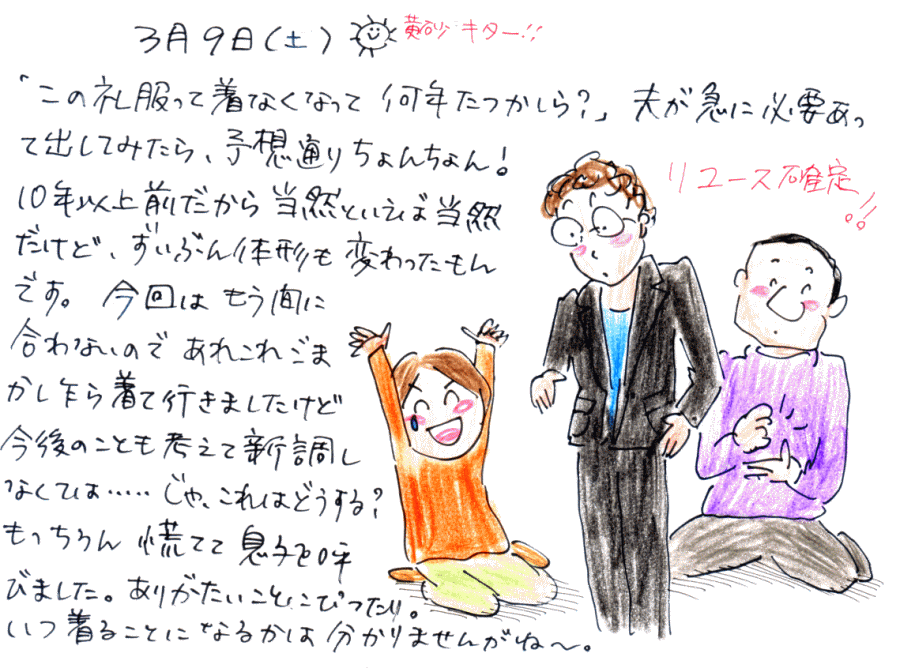 3月9日(土) 黄砂キター!!
「この礼服って着なくなって何年たつかしら?」夫が急に必要あっ
て出してみたら、予想通りちょんちょん!
リユース確定!!
10年以上前だから当然といえば当然
だけど、ずいぶん体形も変わったもん
です。今回はもう間に
合わないのであれこれごま
かし乍ら着て行きましたけど
今後のことも考えて新調し
なくては……じゃ、これはどうする?
もっちろん慌てて息子を呼
びました。ありがたいことにぴったり。
いつ着ることになるかは分かりませんがね〜。